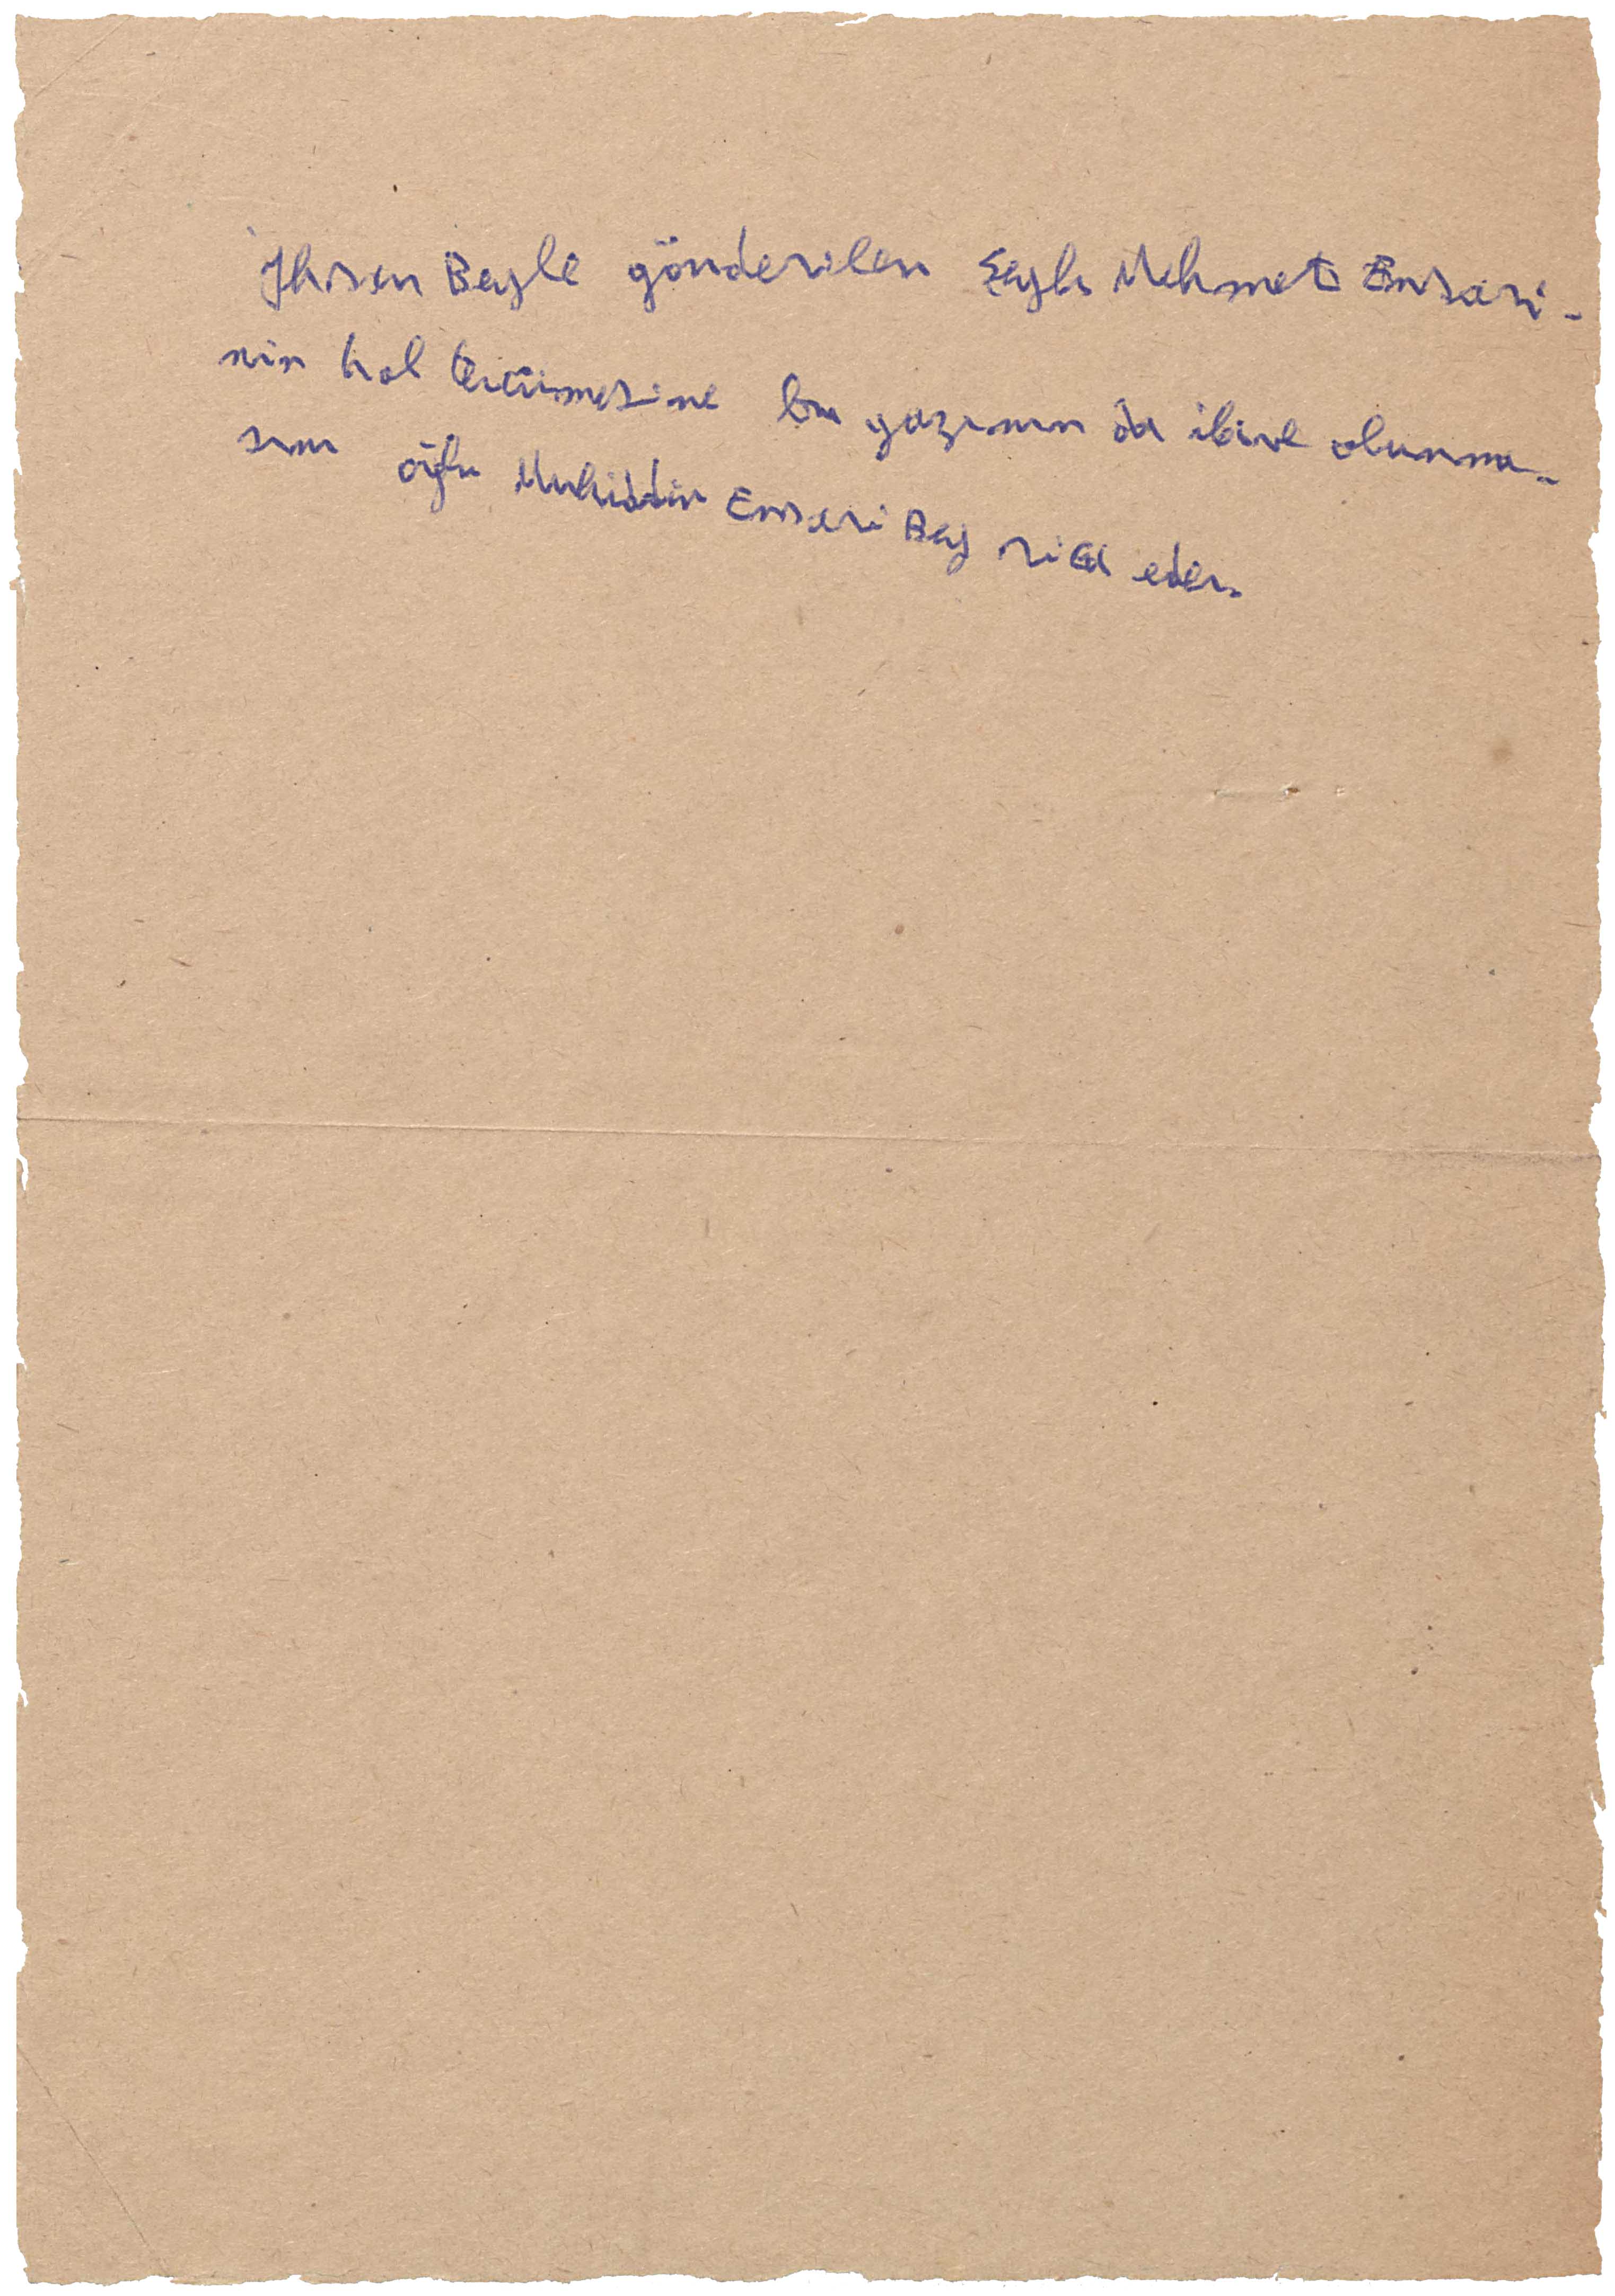 Ihsan Beyle gönderilen Şeyh Mehmet Ensari-
nin hal tercümesine bu yazının da ilâve olunma-
sını oğlu Muhiddin Ensari Bey rica eder.